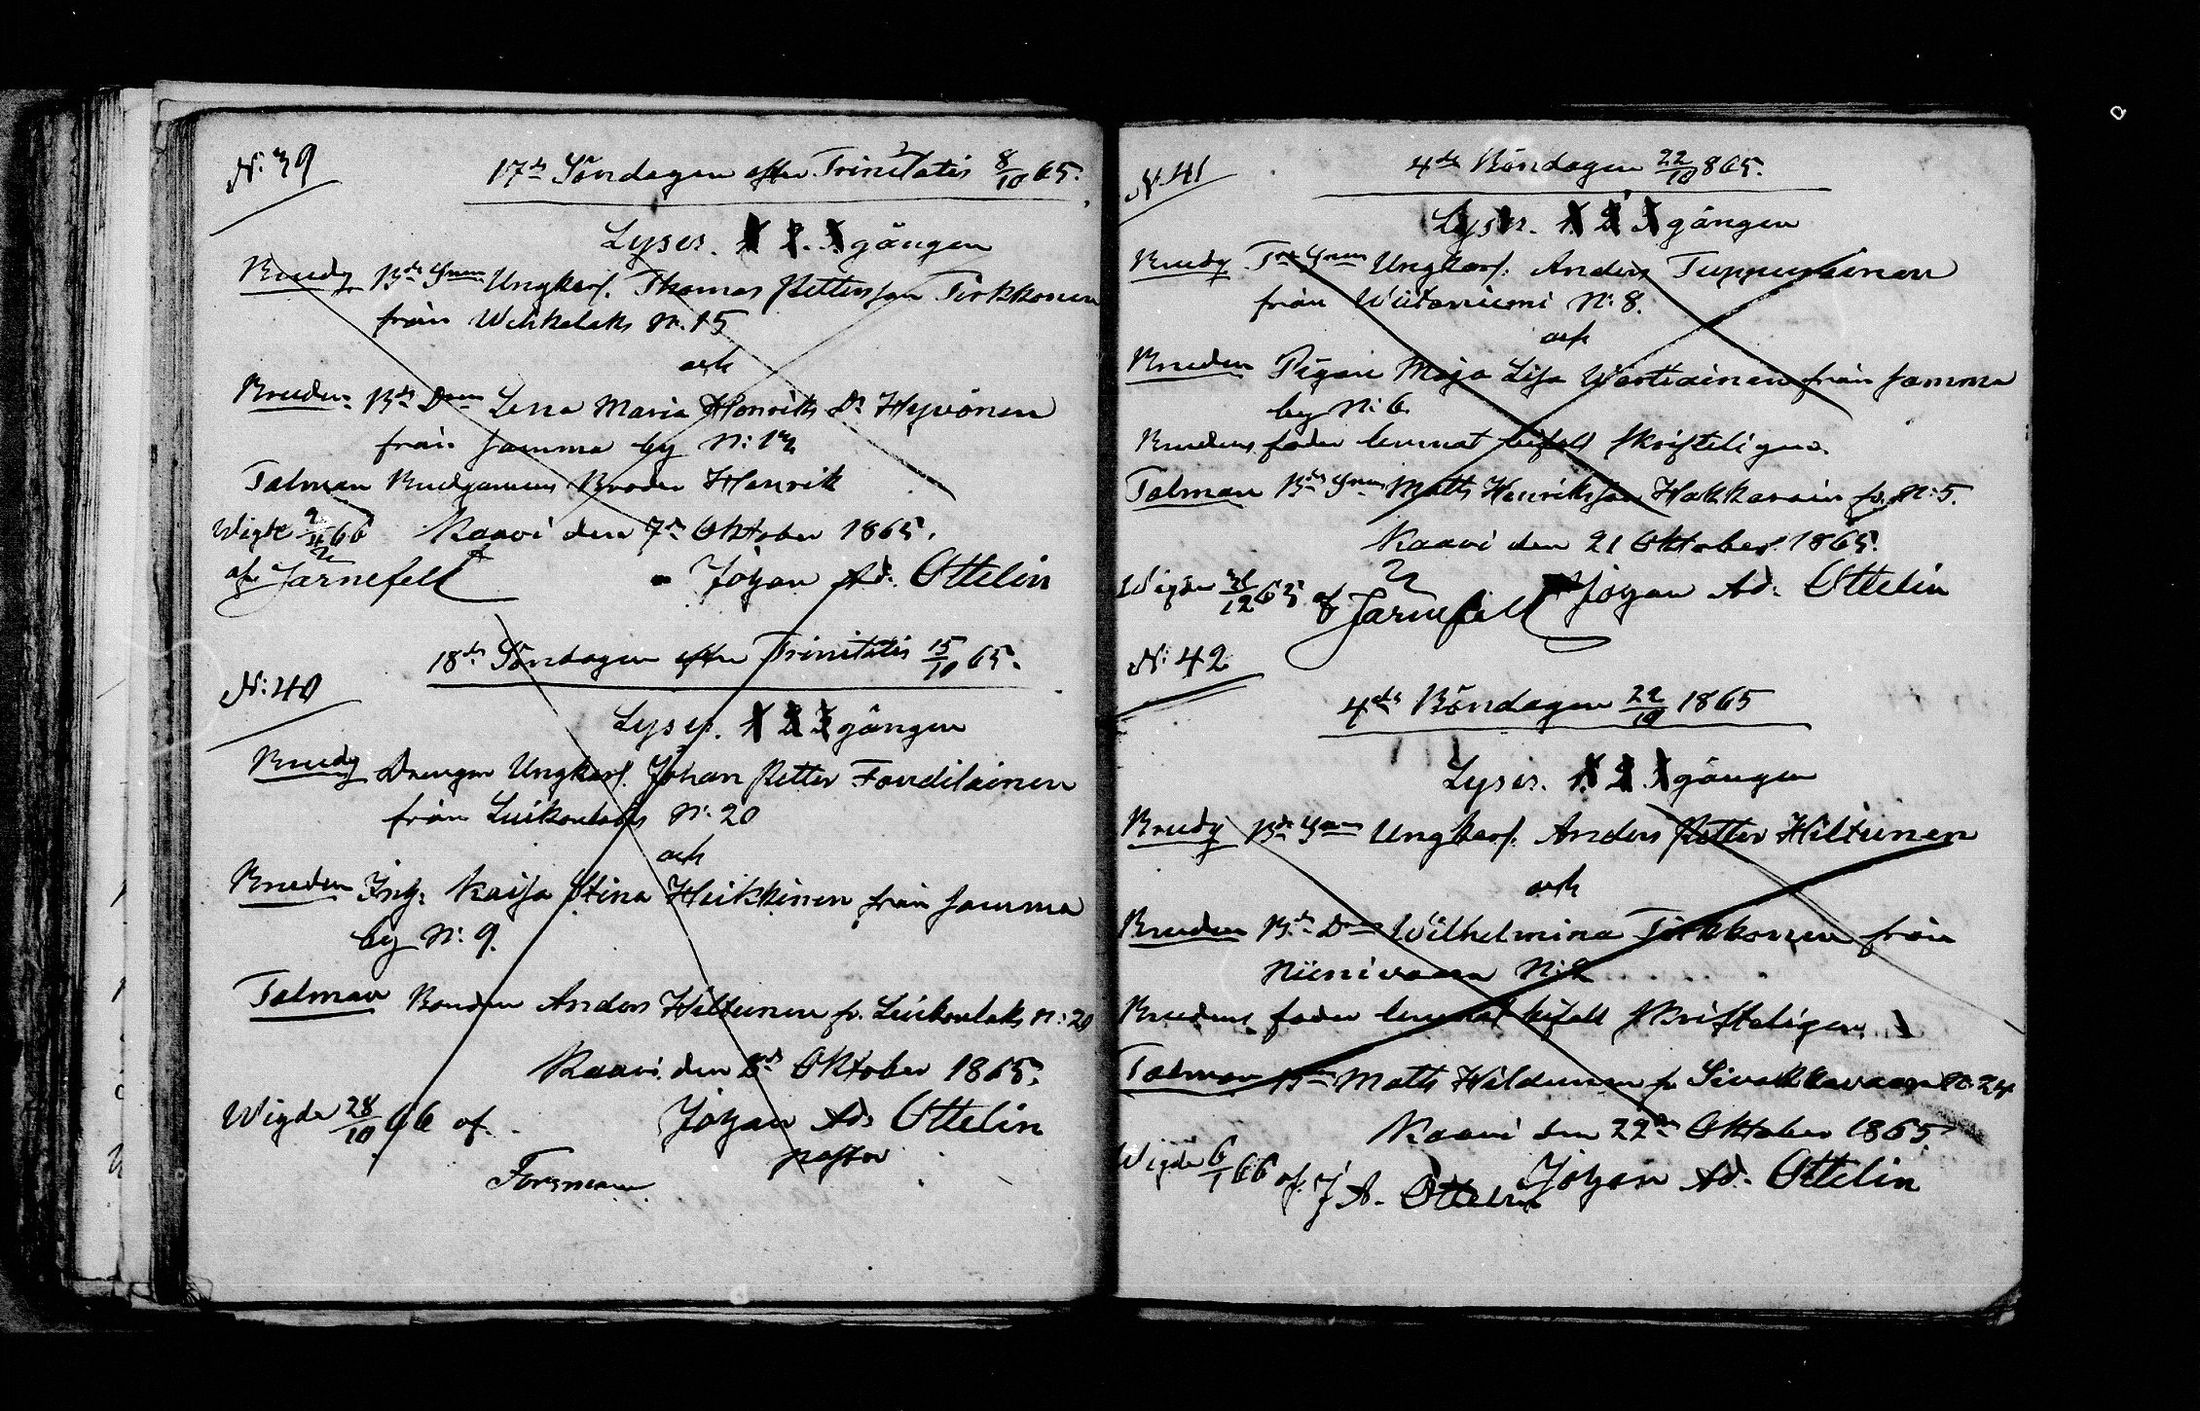 N: 39
17de Söndagen efter Trinitatis 8/10 65.
Lyses. 1 2. 3 gången
Brudg. Bde Son Ungkarl. Thomas Pettersson Tirkkonen
från Wihkelaks N: 15
och
Bruden Bde Don Lena Maria Henriks Dr Hyvönen
från Jamma by N: 12
Talman Brudgummens Broder Henrik
Kaavi den 7de Oktober 1865.
Wigde 2/4 66
af Järnefelt
Johan Ad. Ottelin
N: 40
18de Söndagen efter Trinitatis 15/10 65.
Lyses. 1 2 3 gången
Brudg Drengen Ungkarl. Johan Petter
från Luikonlaks N: 20
och
Bruden Inh: Kaisa Stina Heikkinen från Jamma
by N: 9.
Talman Bonden Anders Hiltunen fr. Luikonlaks N: 20
Kaavi den Oktober 1865.
Johan Ad. Ottelin
pastor
Wigde 28/10 66 af
Forsman
N: 41
4de Böndagen 22/10 865.
Lyses. 1 2 3 gången
Brudg Son Ungkarl. Anders Tuppurainen
från N: 8.
och
Bruden Pigan Maja Lisa Wartiainen från Jamma
by N: 6.
Brudens fader lemnat bifall skrifteligen.
Talman Bde Son Matts Henriksson Hakkarain fr. N: 5.
Kaavi den 21 Oktober 1865.
Johan Ad. Ottelin
Wigde 31/12 65 af Järnefelt
N: 42
4de Böndagen 22/10 1865
Lyses. 1 2 3 gången
Brudg Bde Son Ungkarl. Anders Petter Hiltunen
och
Bruden Bde Don Wilhelmina Tirkkonen från
Niinivaara N: 2
Brudens fader lemnat bifall skrifteligen.
Talman Bden Matts Hildunen fr Sivakkavaara N: 24
Kaavi den 22de Oktober 1865.
Johan Ad. Ottelin
Wigde 6/1 66 af J A. Ottelin